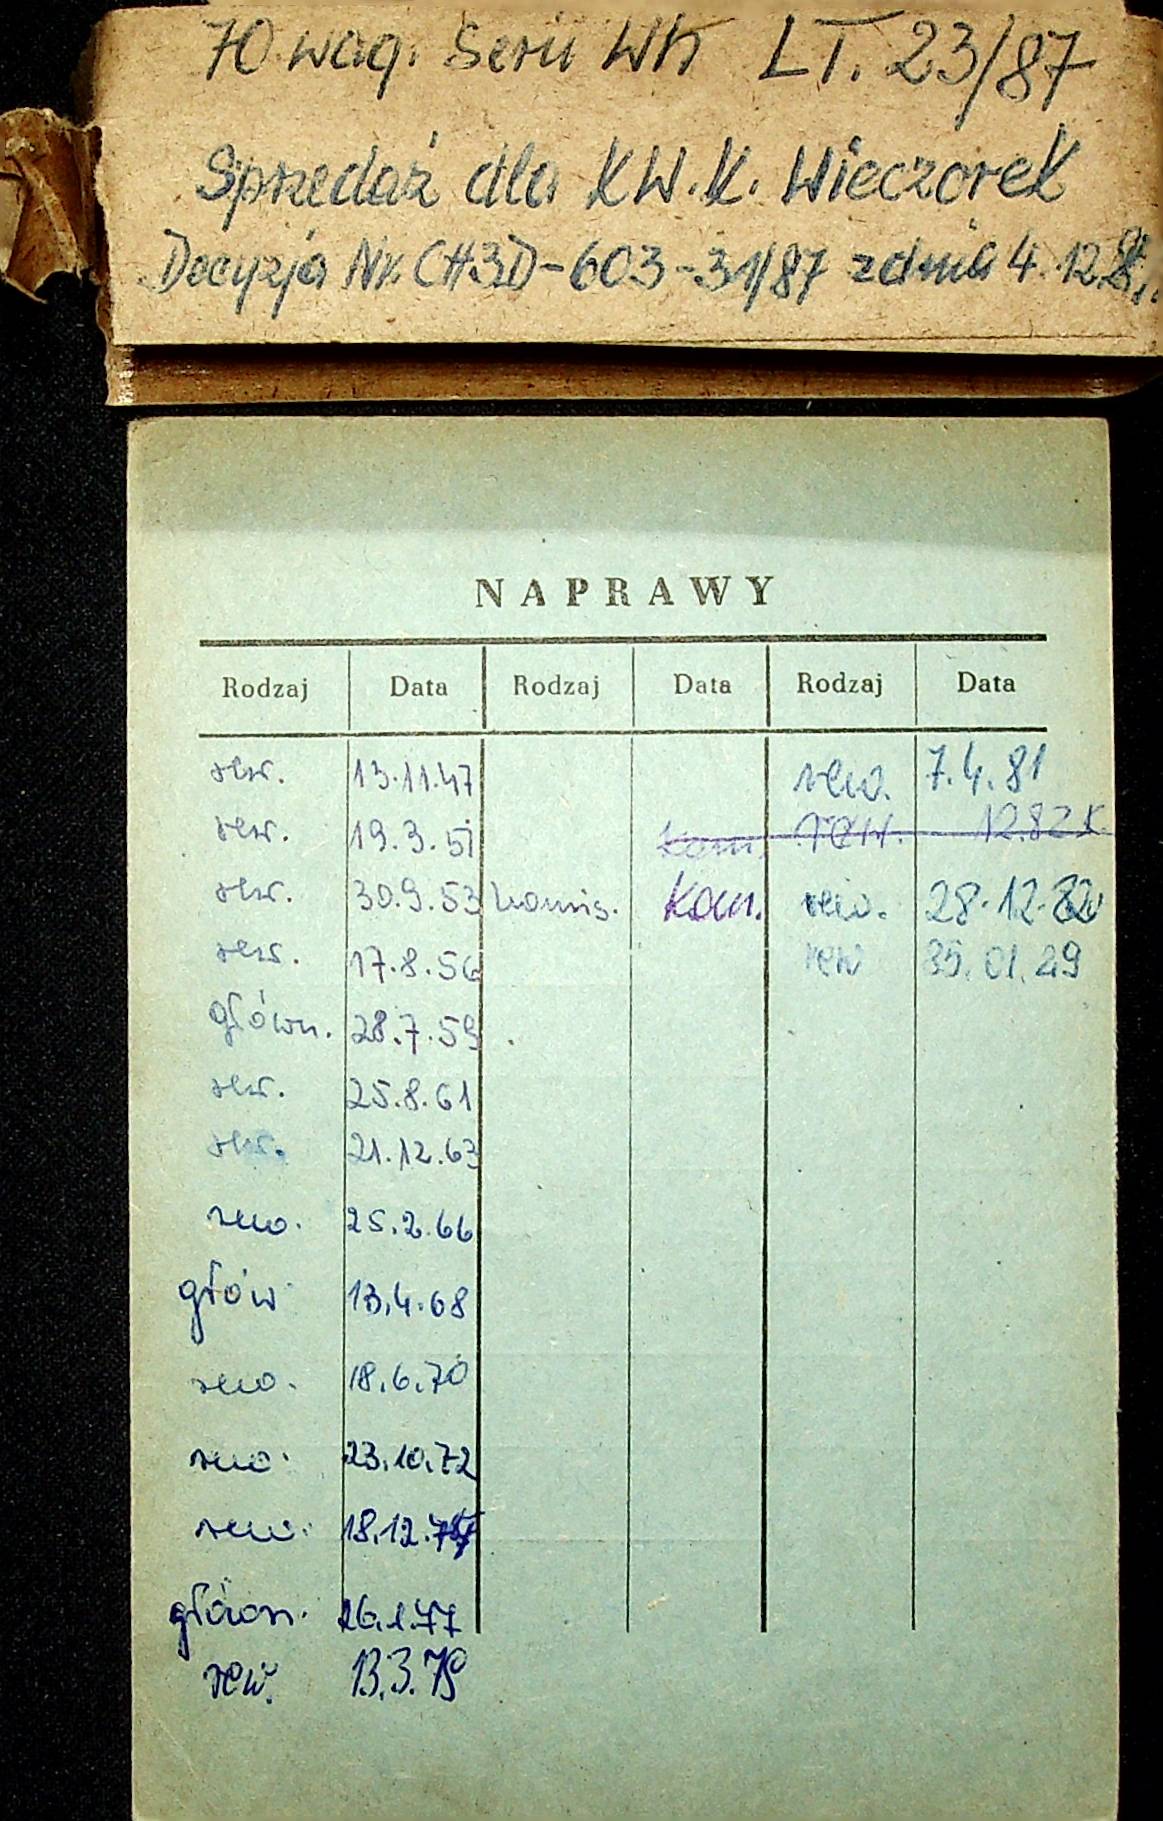 70 wag. Serii Wh LT. 23/87
Sprzedaż dla KW.K. Wieczorek
Decyzja Nr. CH3D-603-31/87 z dnia 4.12.
NAPRAWY
Rodzaj Data Rodzaj Data Rodzaj Data
rew. 13.11.47 rew. 7.4.81
rew. 19.3.51 Kom. rew. 12.82
rew. 30.9.53 komis. Kom. rew. 28.12.82
rew. 17.8.56 rew
główn. 28.7.59
rew. 25.8.61
rew. 21.12.63
rew. 25.2.66
głów 13.4.68
rew. 18.6.70
rew. 23.10.72
rew. 18.12.
główn. 26.1.77
rew. 13.3.79